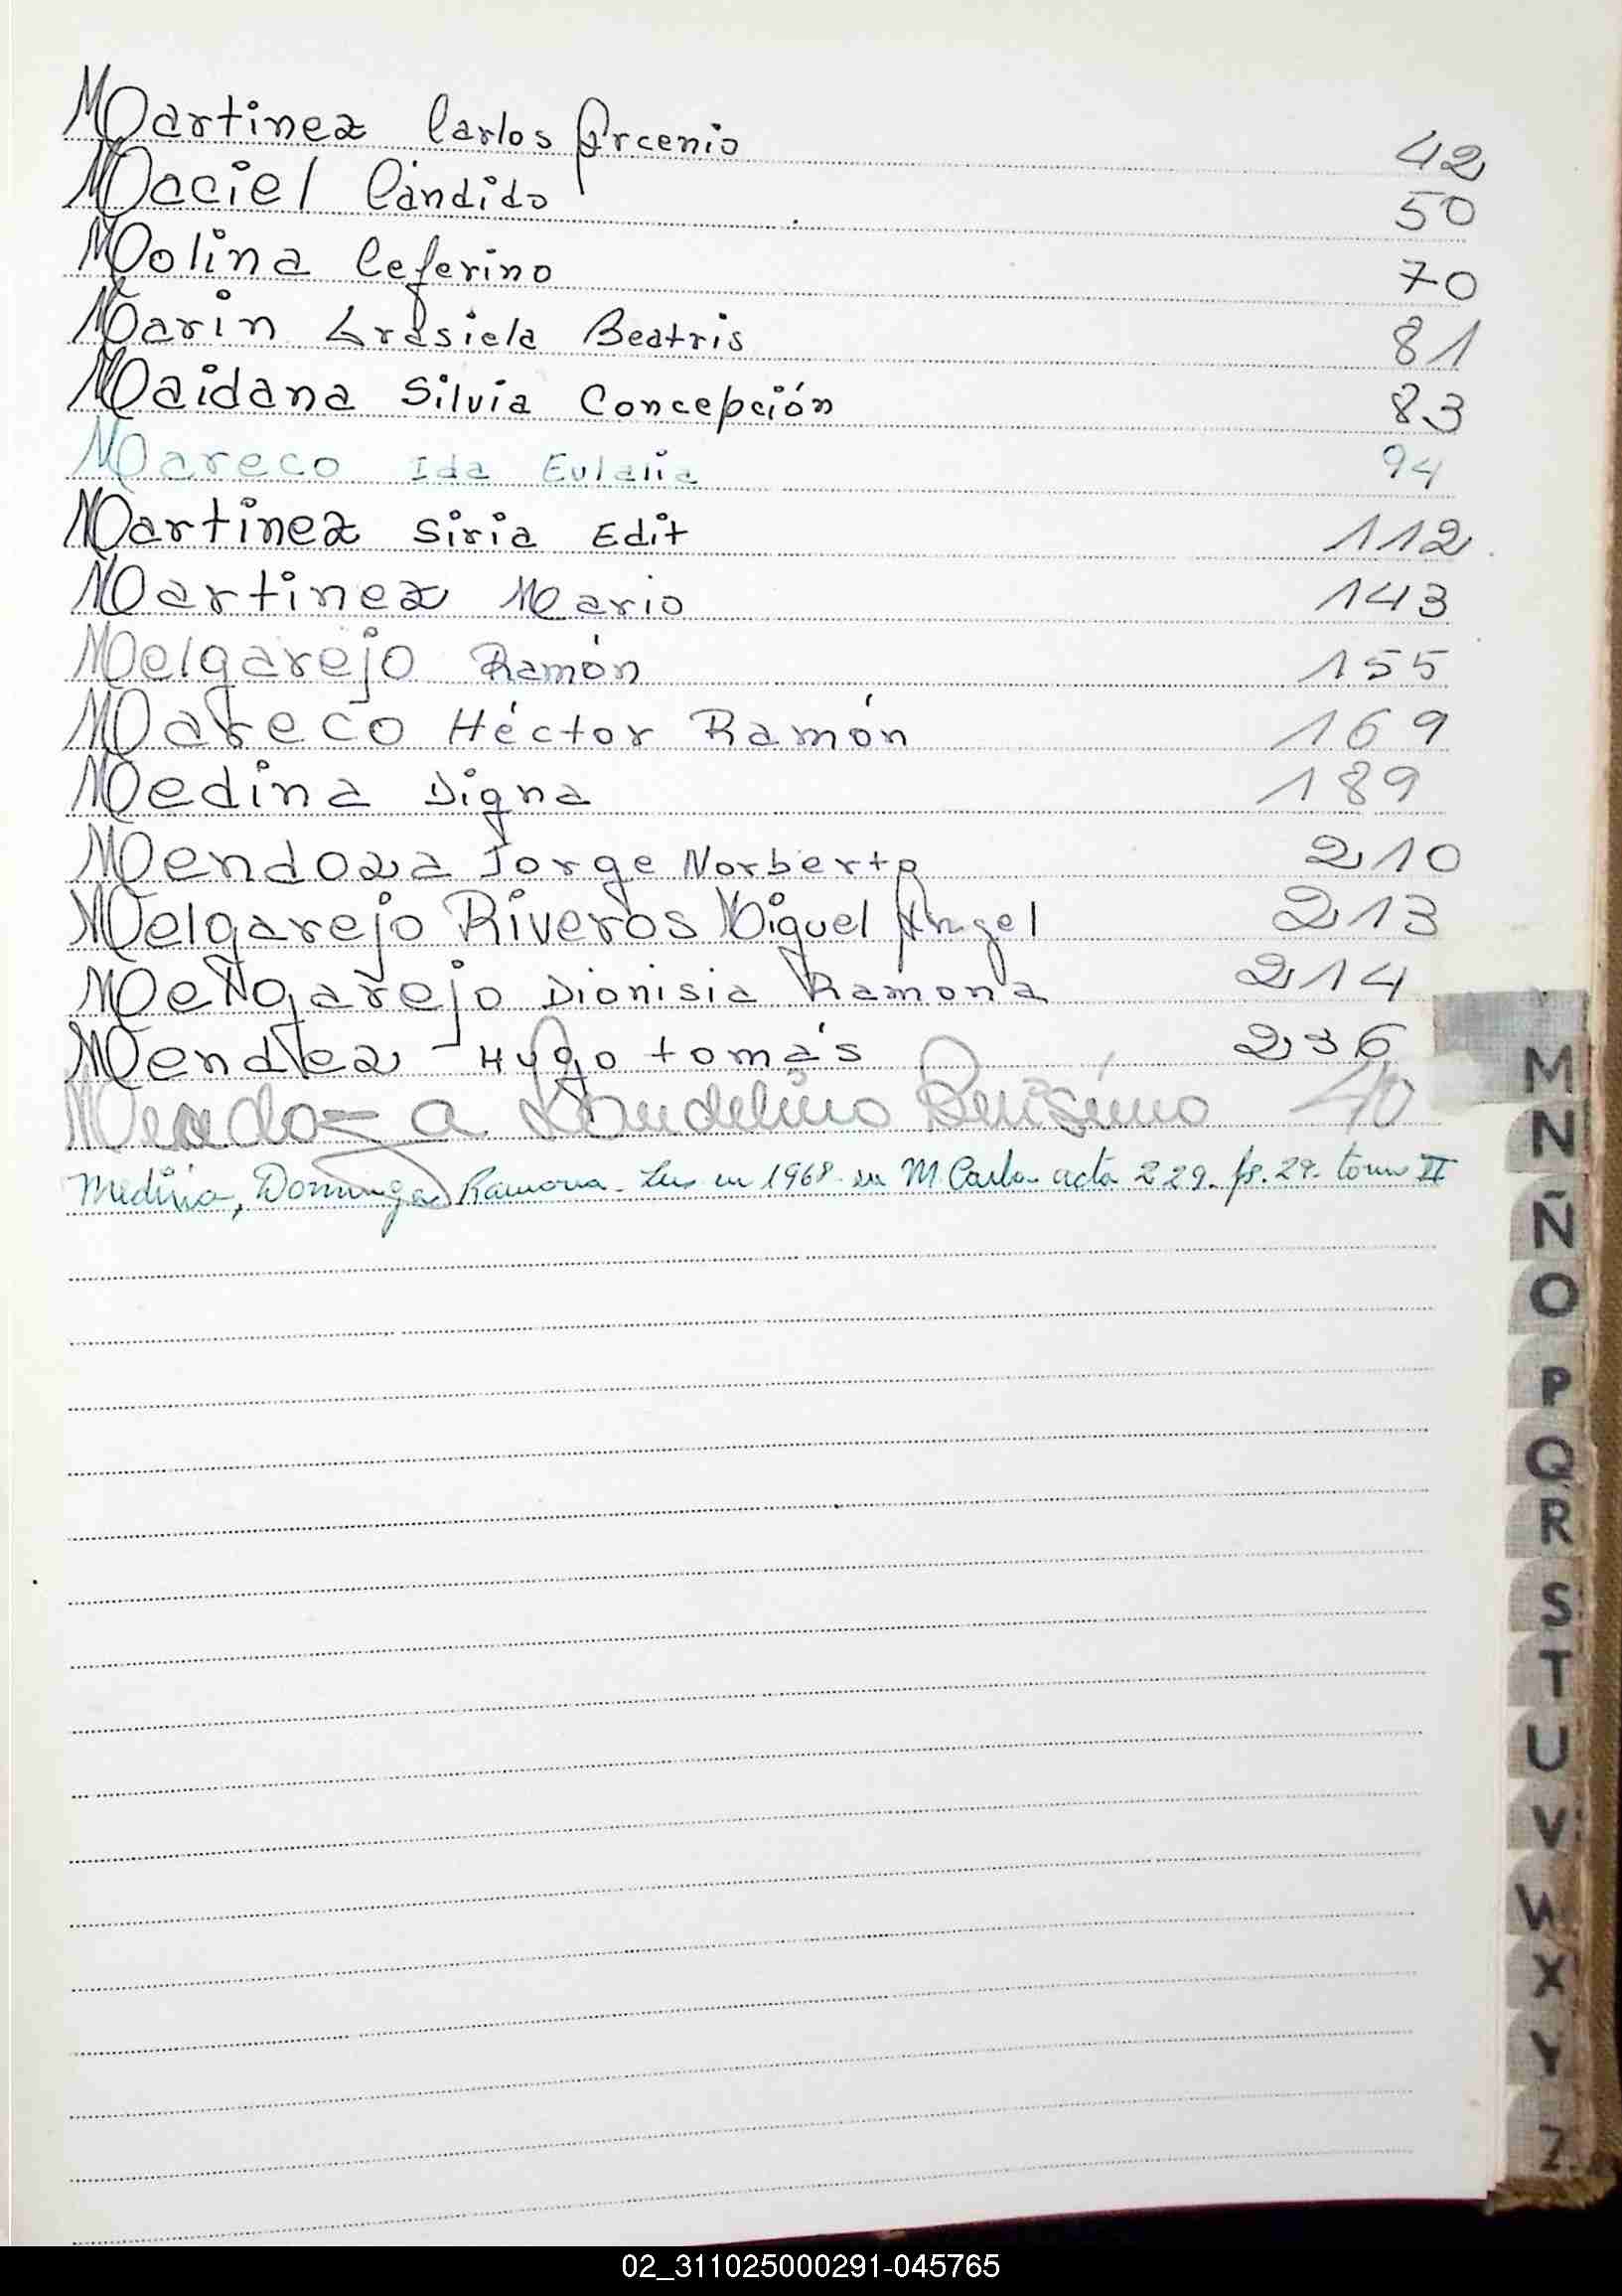 Martinez Carlos Arcenio 42
Maciel Cándido 50
Molina Ceferino 70
Marin Grasiela Beatris 81
Maidana Silvia Concepción 83
Mareco Ida Eulalia 94
Martinez Siria Edit 112
Martinez Mario 143
Melgarejo Ramón 155
Mareco Héctor Ramón 169
Medina Digna 189
Mendoza Jorge Norberto 210
Melgarejo Riveros Miguel Angel 213
Melgarejo Dionisia Ramona 214
Mendez Hugo tomás 236
Mendoza Laudelino 40
Medina, Dominga Ramona. en 1968. en M. acta 229. fs. 29. tomo II
M
N
Ñ
O
P
Q
R
S
T
U
V
W
X
Y
Z
02_311025000291-045765